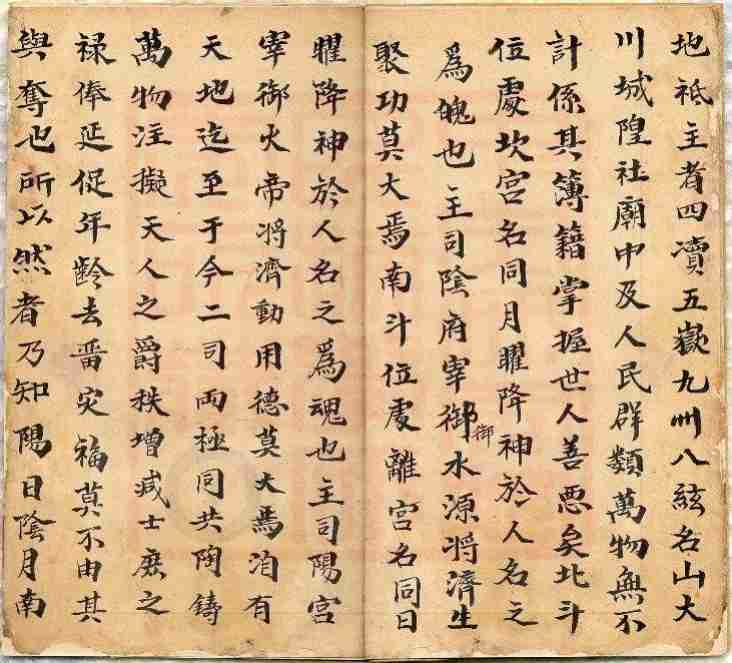 地祇主者四瀆五嶽九州八紘名山大
川城隍社廟中及人民群類萬物無不
計係其簿籍掌握世人善惡矣北斗
位處坎宮名同月曜降神於人名之
為魄也主司陰府宰御水源將濟生
御
聚功莫大焉南斗位處離宮名同日
曜降神於人名之為魂也主司陽宮
宰御火帝將濟動用德莫大焉洎有
天地迄至于今二司兩極同共陶鑄
萬物注擬天人之爵秩增減士庶之
祿俸延促年齡去留灾福莫不由其
與奪也所以然者乃知陽日陰月南